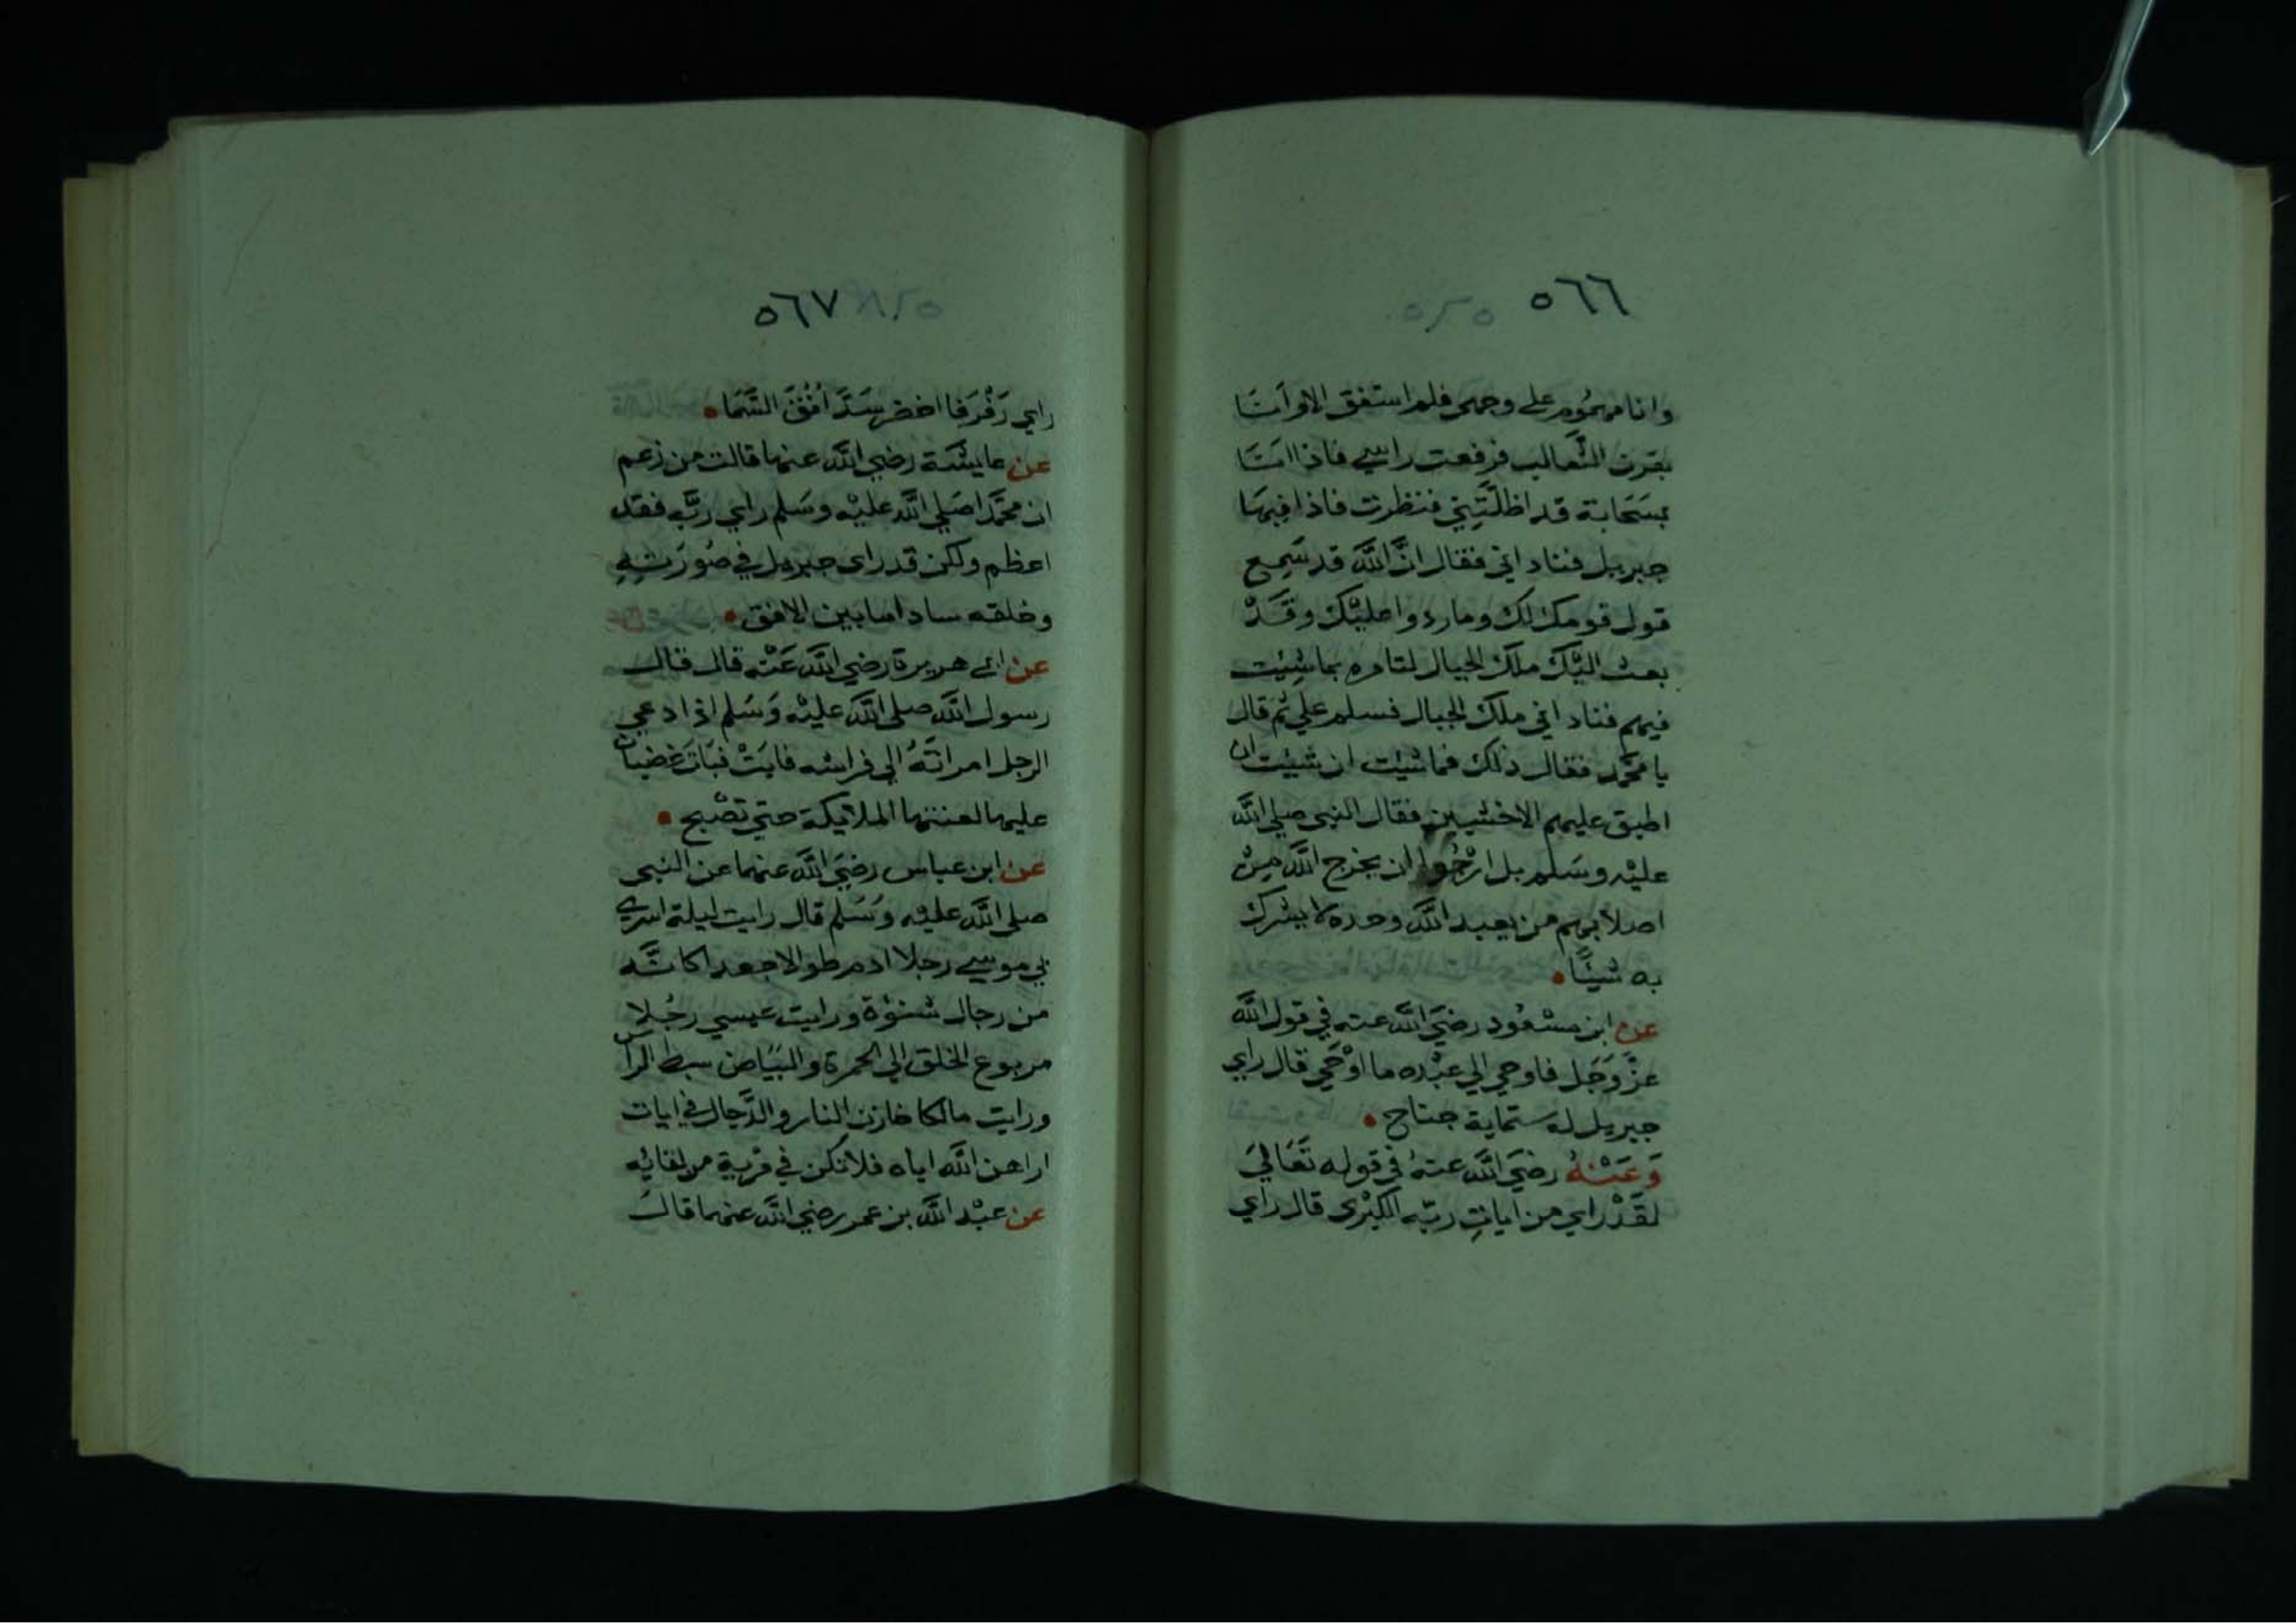 ٥٦٦
وانا مهموم على وجهي فلم استفق الاوانا
بقرن الثعالب فرفعت راسي فاذا انا
بسَحابة قد اظلّتني فنظرت فاذا فيها
جبريل فناداني فقال انَّ اللَّه قد سَمِع
قول قومك لك وما ردوا عليْك وقَدْ
بعث اليْك ملَك الجبال لتامره بما شِيْت
فيهم فناداني ملك الجبال فسلم علي ثم قال
يا محمَّد فقال ذلك فما شيْت ان شيْت ان
اطبق عليهم الاخشبين فقال النبي صلي اللَّه
عليْه وسَلم بل ارْجُوا ان يخرج اللَّه مِنْ
اصلابهم من يعبد اللَّه وحده لا يشرك
به شيْـًٔا
عن ابن مسْعُود رضيَ اللَّه عنه في قول اللَّه
عزَّ وَجَل فاوحي الي عبْده ما اوْحَي قال راي
جبريل له ستماية جناح
وَعَنْهُ رضيَ اللَّه عنهُ في قوله تَعَاليَ
لقَدْ راي من اياتِ ربّه الكبْرى قال راي
٥٦٧
راي رَفْرَفا اخضر سَدَّ افُقَ السَّمَا
عن عايشة رضي اللَّه عنها قالت من زعم
ان محمَّدا صَلي اللَّه عليْه وسَلم راي ربَّه فقد
اعظم ولكن قد راى جبريل في صُورَته
وخلقه سادا ما بين الافق
عن ابي هريرة رضي اللَّه عَنْه قال قال
رسول اللَّه صلى اللَّه عليْه وَسَلم اذا دعي
الرجل امراتَهُ الي فراشه فابَتْ فبَاتَ غضبان
عليها لعنتها الملايكة حتي تصْبح
عن ابن عباس رضيَ اللَّه عنهما عن النبي
صلى اللَّه عليْه وَسَلم قال رايت ليلة اسري
بي موسي رجلا ادم طوالا جعدا كانَّه
من رجال شنؤة ورايت عيسي رجُلا
مربوع الخلق الي الحمرة والبيَاض سبط الراس
ورايت مالكا خازن النار والدَّجال في ايات
اراهن اللَّه اياه فلا تكن في مرية من لقايه
عن عبْد اللَّه بن عمر رضي اللَّه عنهما قال